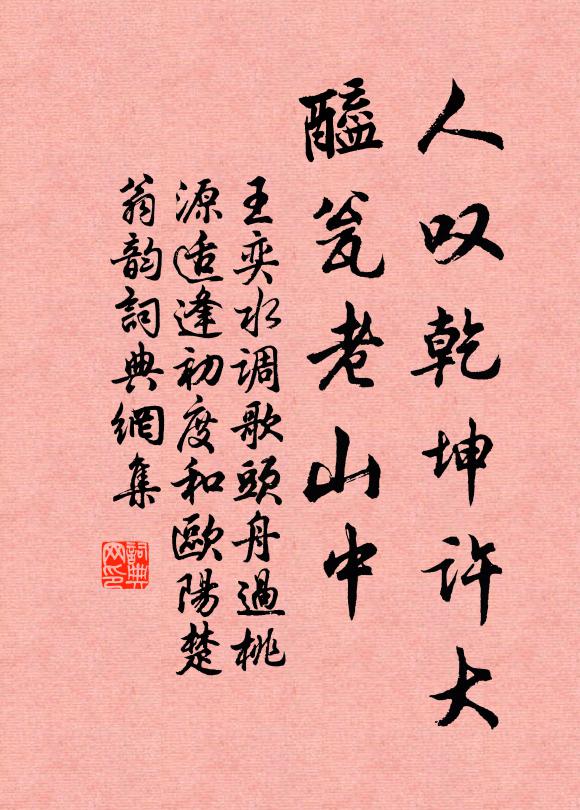 人叹乾坤许大
醯瓮老山中
王奕水调歌头舟過桃
源适逢初度和歐陽楚
翁韵詞典網集
詞典网印